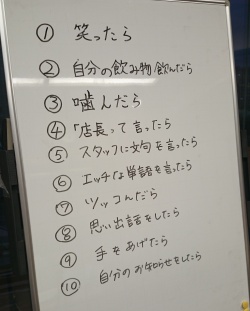 ① 笑ったら
② 自分の飲み物飲んだら
③ 噛んだら
④ 「店長って言ったら
⑤ スタッフに文句を言ったら
⑥ エッチな単語を言ったら
⑦ ツッコんだら
⑧ 思い出話をしたら
⑨ 手をあげたら
⑩ 自分のお知らせをしたら